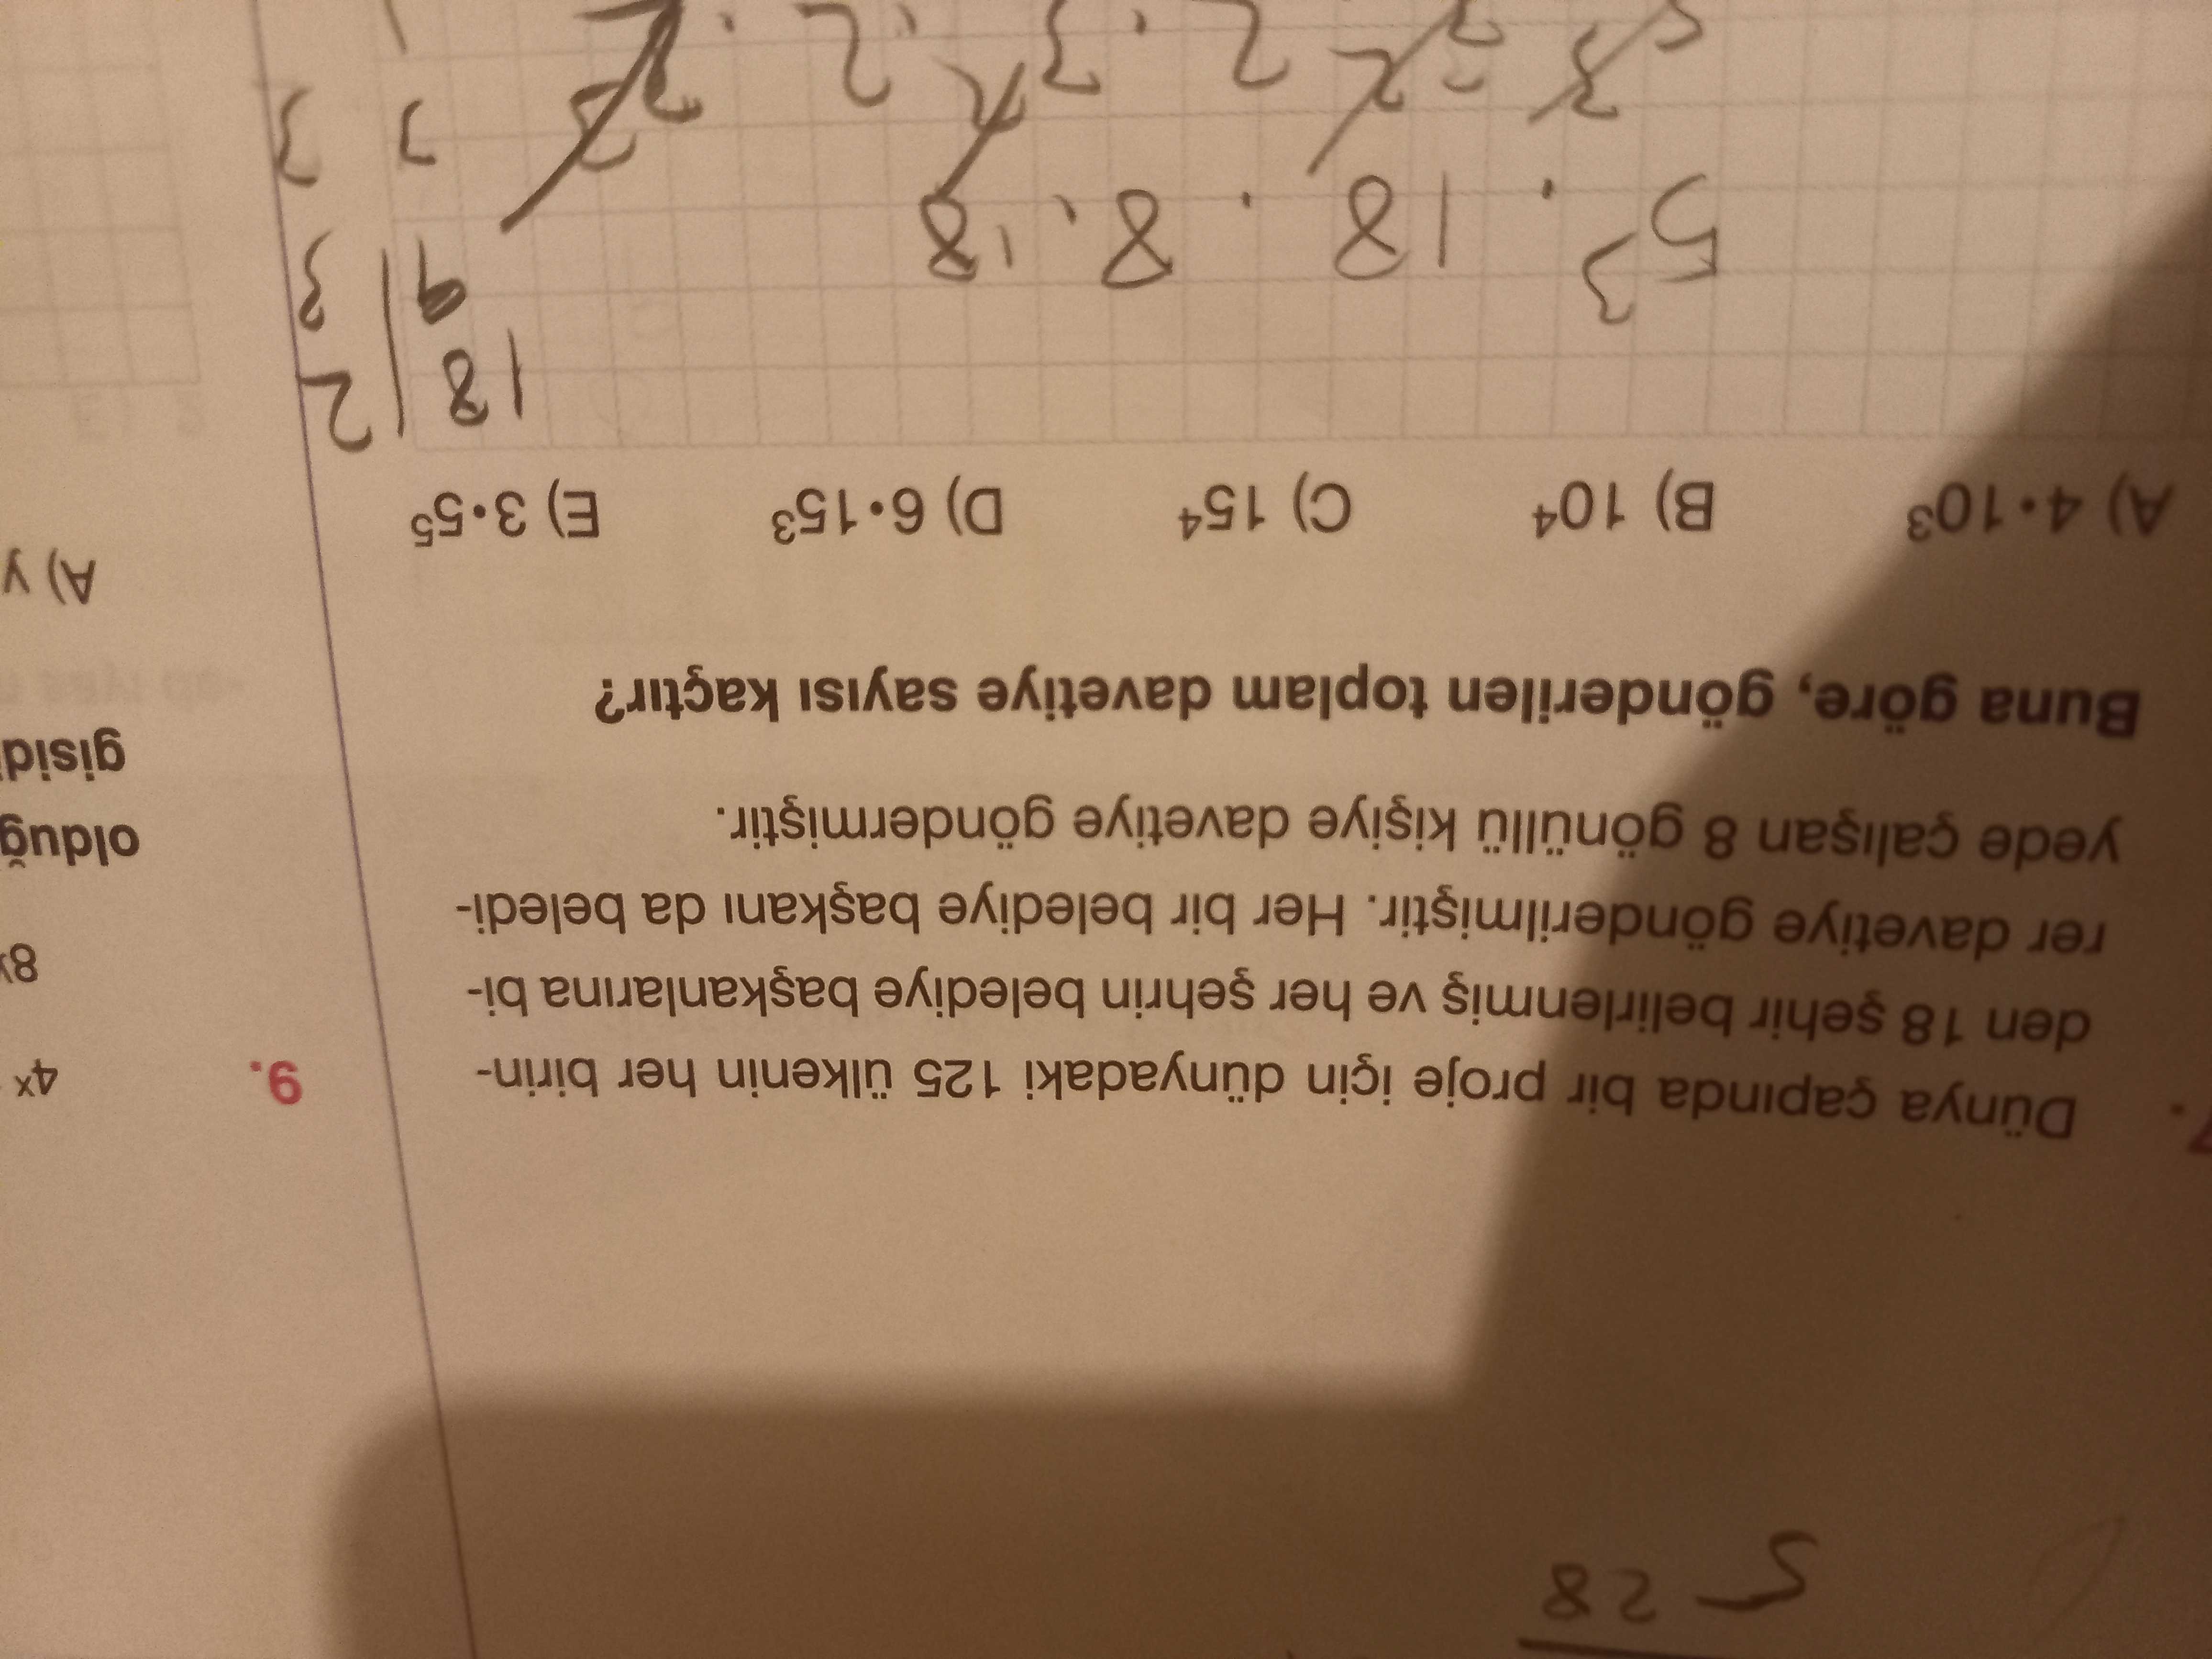 5 28
7.
Dünya çapında bir proje için dünyadaki 125 ülkenin her birin-
den 18 şehir belirlenmiş ve her şehrin belediye başkanlarına bi-
rer davetiye gönderilmiştir. Her bir belediye başkanı da beledi-
yede çalışan 8 gönüllü kişiye davetiye göndermiştir.
Buna göre, gönderilen toplam davetiye sayısı kaçtır?
A) 4·10³ B) 10⁴ C) 15⁴ D) 6·15³ E) 3·5⁵
18 | 2
9 | 3
3 3
5³ · 18 · 8 · 18
2 · 3 · 2 ·
9.
4ˣ
8
olduğ
gisid
A) y